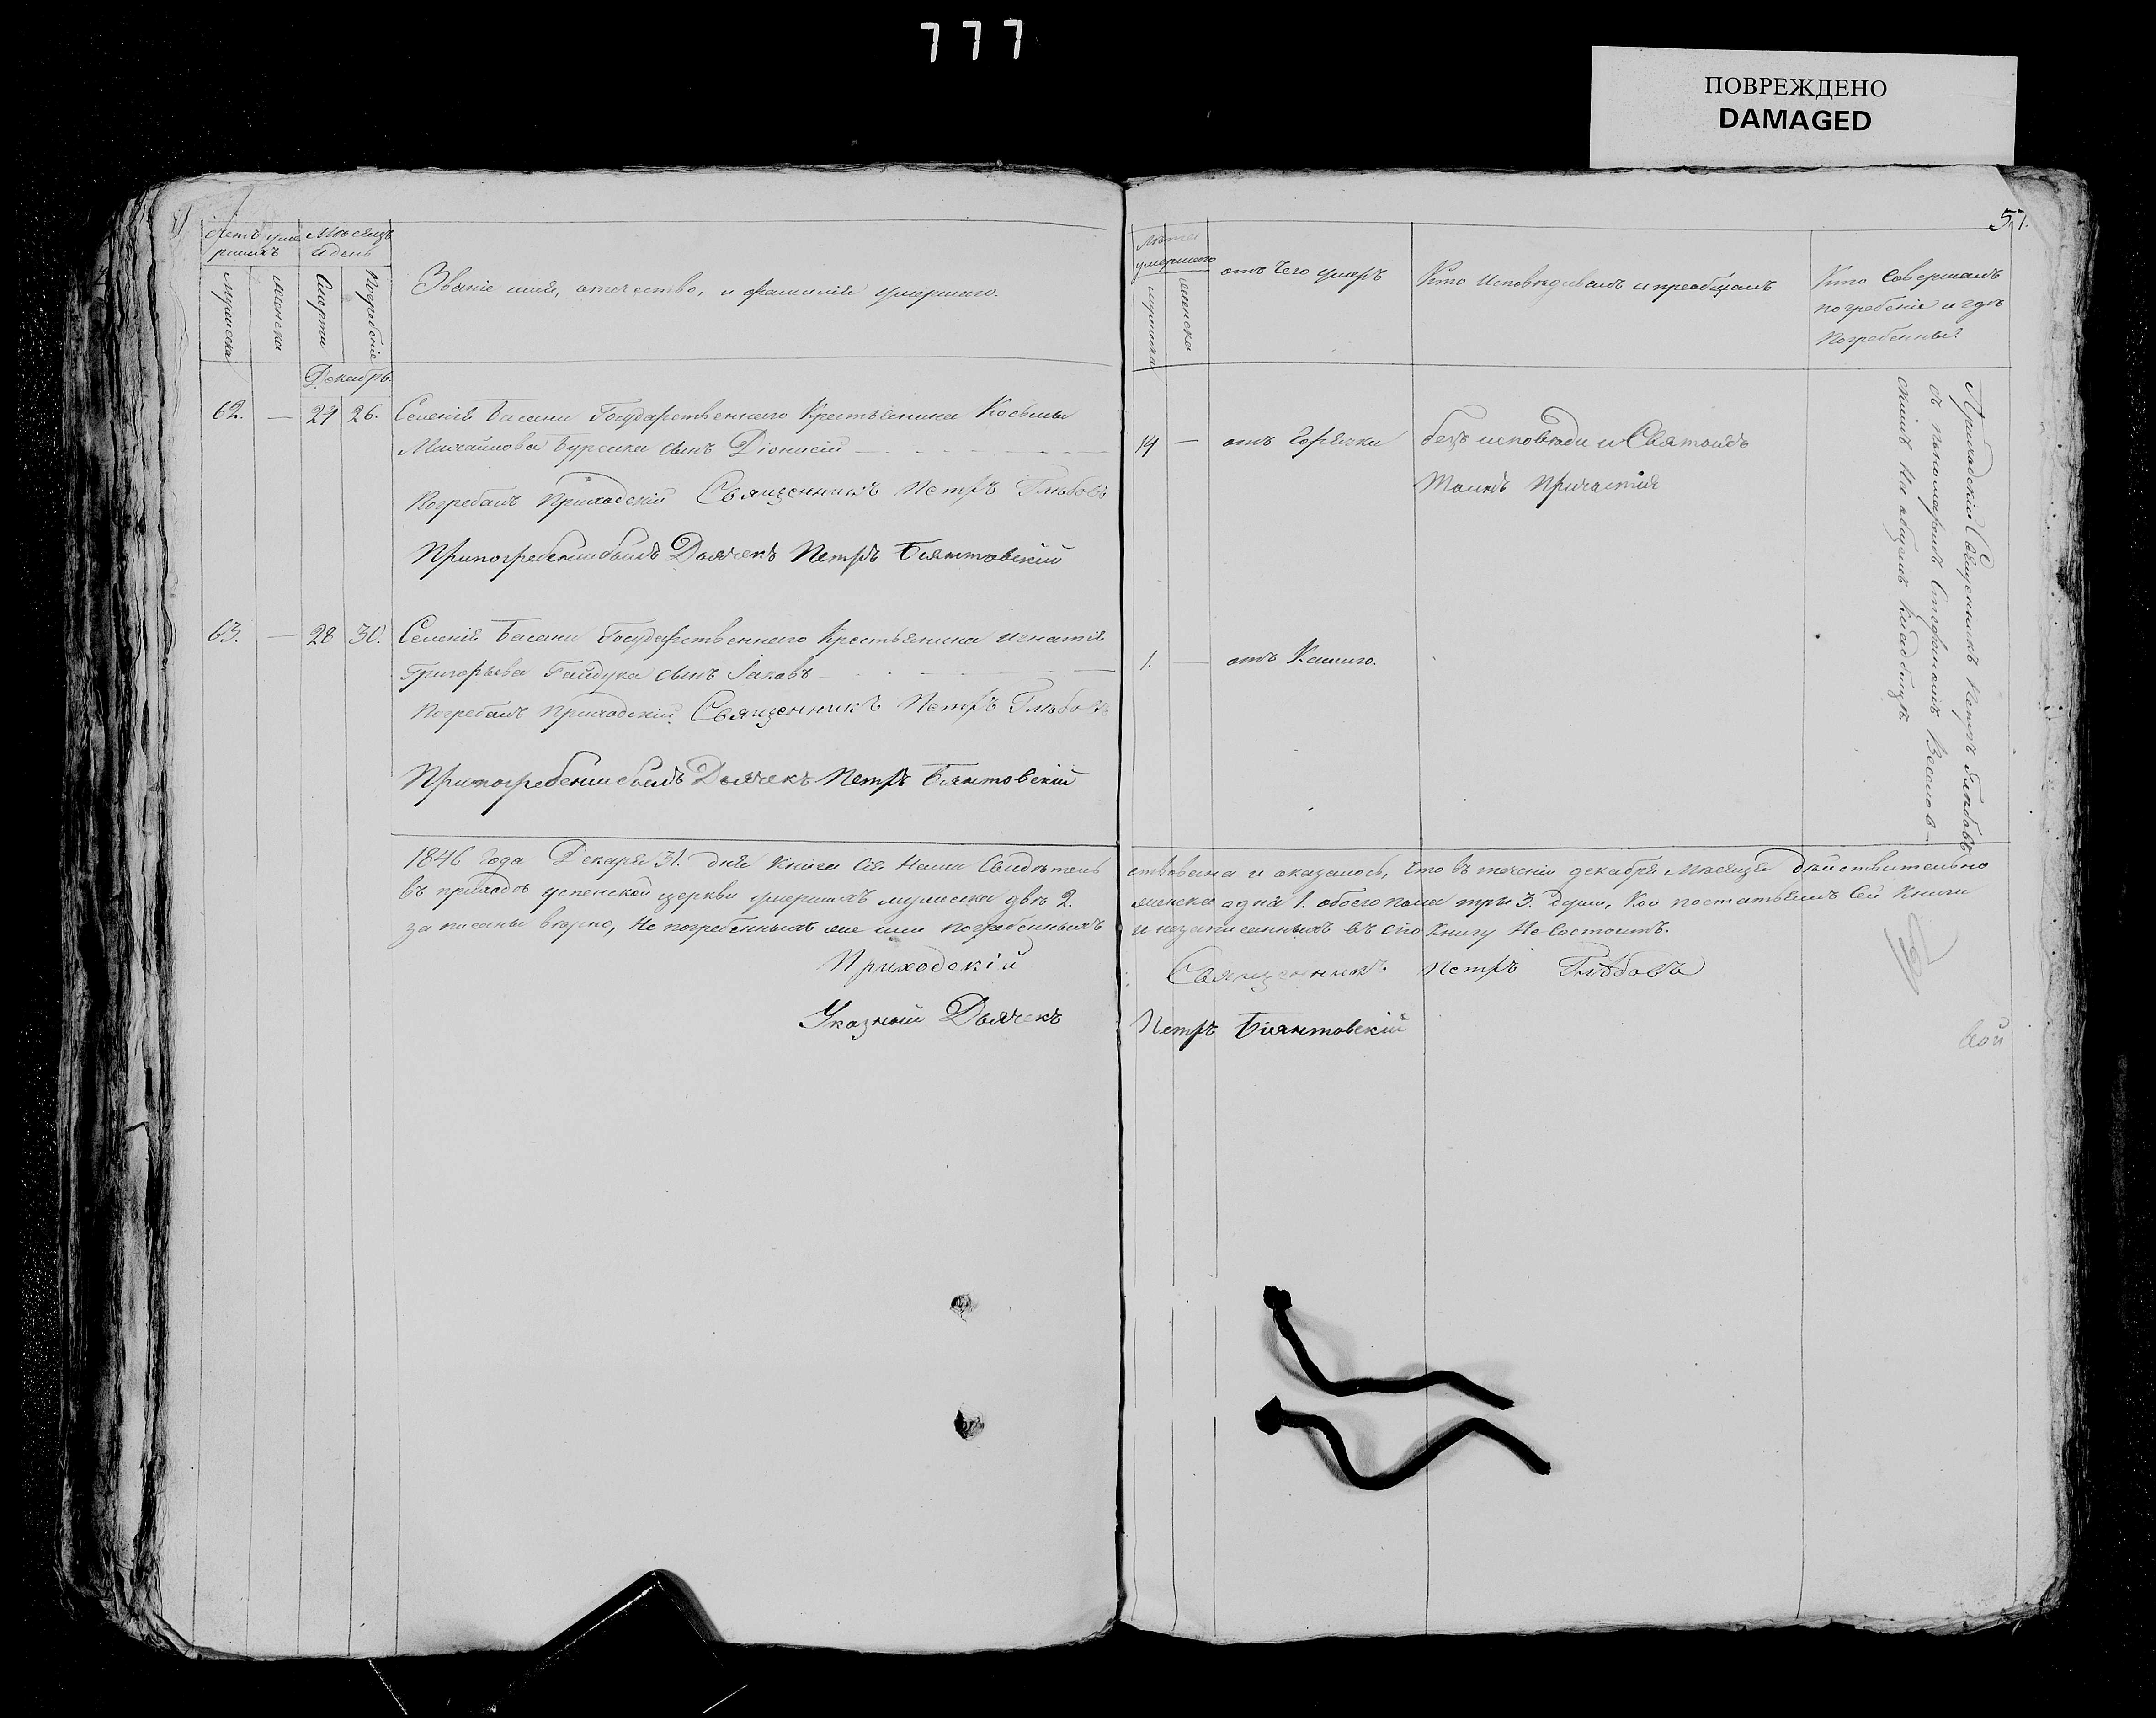 777
ПОВРЕЖДЕНО
DAMAGED
51.
Счетъ уме
ршихъ
Мѣсяцъ
и день
мужеска
женска
Смерти
Погребенія
Званіе имя, отечество, и фамилія умершаго.
Лѣта
умершаго
мужеска
женска
отъ чего умеръ
Кто исповѣдывалъ и пріобщалъ
Кто Совершалъ
погребеніе и гдѣ
Погребенны
Декабрь.
62. — 24 26. Селенія Басани Государственнаго Крестьянина Косьмы
Михайлова Бурсика сынъ Діонисій
Погребалъ Приходскій Священникъ Петръ Глѣбовъ
При погребеніи былъ Дьячекъ Петръ
19 — отъ Горячки безъ исповѣди и Святыхъ
Таинъ Причастія
63. — 28 30. Селенія Басани Государственнаго Крестьянина Игнатія
Григорьева Гайдука сынъ Іаковъ
Погребалъ Приходскій Священникъ Петръ Глѣбовъ
При погребеніи былъ Дьячекъ Петръ
1. — отъ Кашлю.
Приходскій Священникъ Петръ Глѣбовъ
съ пономаремъ Стефаномъ Веселов-
скимъ на общемъ кладбищѣ
1846 года Декаря 31. дня книга сія нами Свидѣтель
ствована и оказалось, что въ теченіи декабря мѣсяца дѣйствительно
въ приходѣ успенской церкви умершихъ мужеска двѣ 2.
женска одна 1. обоего пола три 3. души, кои по статьямъ сей книги
записаны вѣрно, не погребенныхъ же или погребенныхъ
и незаписанныхъ въ сію книгу не состоитъ.
Приходскій Священникъ Петръ Глѣбовъ
Указный Дьячекъ Петръ